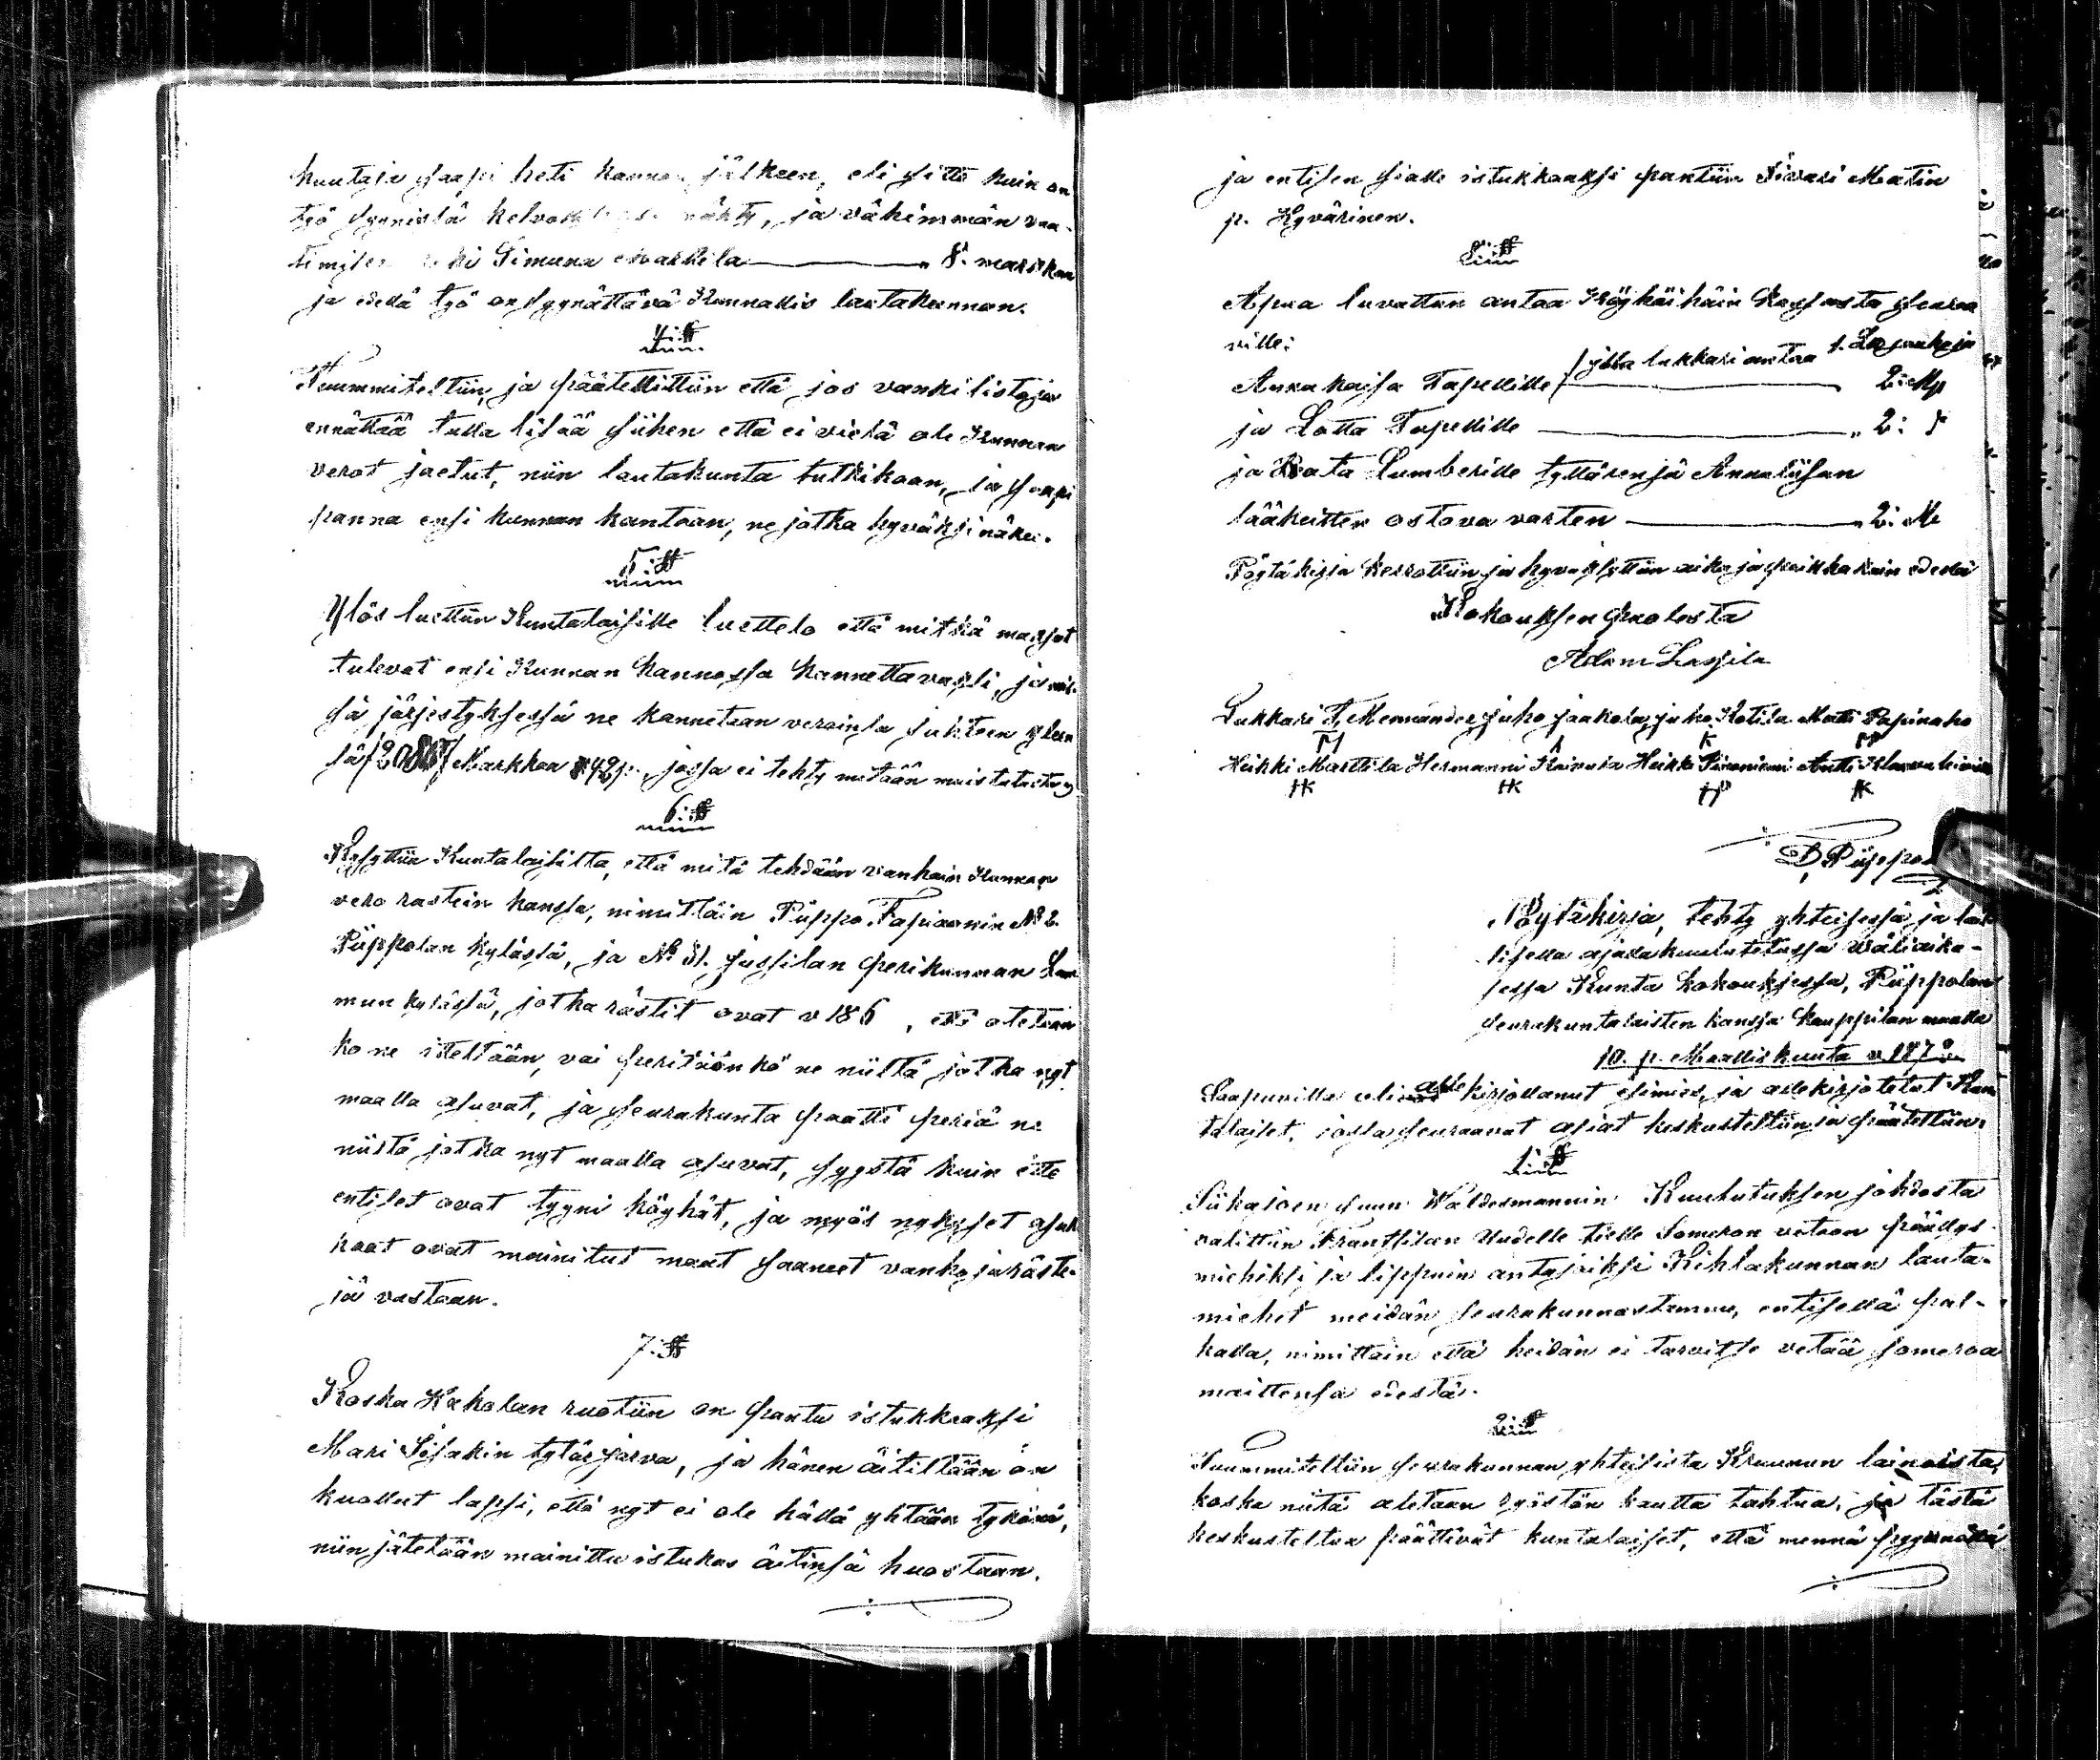 kuutaja saapi heti kannon jälkeen, eli sitte kuin on
työ syynistä nähty, ja vähimmän vaa-
Simuna Markkila 8. markkaa
ja edellä työ on syynättävä Kunnallis lautakunnan.
4:§
Tuummiteltiin, ja päätettiin että jos vankilistoja
ennättää tulla lisää siihen että ei vielä ole Kunnan
verot jaetut, niin lautakunta tutkikaan, ja saapi
panna ensi kunnan kantoon, ne jotka hyväksi näkee.
5:§
Ylös luettiin Kuntalaisille luettelo että mitkä maksot
tulevat ensi Kunnan kannossa kannettavaksi, ja mis-
sä järjestyksessä ne kannetaan verointa suhteen yleen
sä Markkaa 42 p. jossa ei tehty mitään muistutusta
6:§
Kysyttiin Kuntalaisilta, että mitä tehdään vanhain Kunnan
vero rästein kanssa, nimittäin Piippo Tapioonin No 2.
Piippolan kylästä, ja No 31. Jussilan perikunnan Lam
mun kylässä, jotka rästit ovat v 186 , että otetaan
ko ne isteltään, vai peritäänkö ne niiltä jotka nyt
maalla asuvat, ja seurakunta päätti periä ne
niistä jotka nyt maalla asuvat, syystä kuin itte
entiset ovat tyyni köyhät, ja myös nykyset asuk
kaat ovat mainitut maat saaneet vankoja räste-
jä vastaan.
7:§
Koska Kokolan ruotiin on pantu istukkaaksi
Mari Iisakin tytär Jarva, ja hänen äitiltään on
kuollut lapsi, että nyt ei ole hällä yhtään tykönä,
niin jätetään mainittu istukas äitinsä huostaan.
ja entisen sialle istukkaaksi pantiin Iivari Matin
p. Hyvärinen.
8:§
Apua luvattiin antaa Köyhäihäin Kassasta seuraa
ville:
Anna kaisa Tapellille jolla lukkari antaa 2: M
ja Lotta Tapellille 2:
ja Lumberille tyttärensä Annaliisan
lääkeitten ostova varten 2: M
Pöytäkirja kerrottiin ja hyväksyttiin aika ja paikka kuin edellä
Kokouksen puolesta
Adam Lassila
Lukkari F. Mennander Juho Jaakola, Juho Kotila Matti Papinaho
Heikki Marttila Hermanni Heikki Piiraniemi Antti
D, Piippo
Pöytäkirja, tehty yhteisessä ja lail
lisella ajalla kuulutetussa Wäliaika-
sessa Kunta kokouksessa, Piippolan
seurakuntalaisten kanssa Kauppilan maalla
10. p. Maaliskuuta
Saapuvilla oli alle kirjottanut esimies, ja allekirjotetut Kun
talaiset, jossa seuraavat asiat keskusteltiin ja päätettiin:
1:§
Siikajoen Waldesmannin Kuulutuksen johdosta
valittiin Frantsilan Uudelle tielle Someron vetoon päällys-
miehiksi ja lippuin antajaiksi Kihlakunnan lauta-
miehet meidän seurakunnastamme, entisellä pal-
kalla, nimittäin että heidän ei tarvitse vetää someroa
maittensa edestä.
2:§
Tuummiteltiin seurakunnan yhteisistä Kruunun lainoista,
koska niitä aletaan ryöstön kautta tahtua, ja tästä
keskusteltua päättivät kuntalaiset, että mennä syynällä